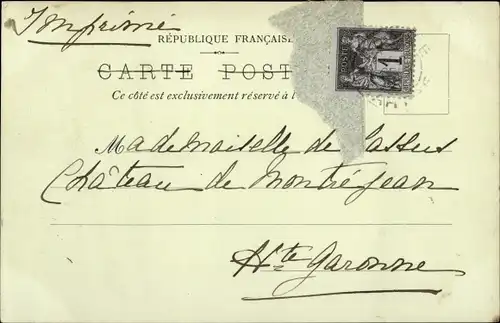 Imprimé
RÉPUBLIQUE FRANÇAISE
CARTE POST
Ce côté est exclusivement réservé à l
POSTES 1
Mademoiselle de Lassus
Château de Montréjeau
Hte Garonne